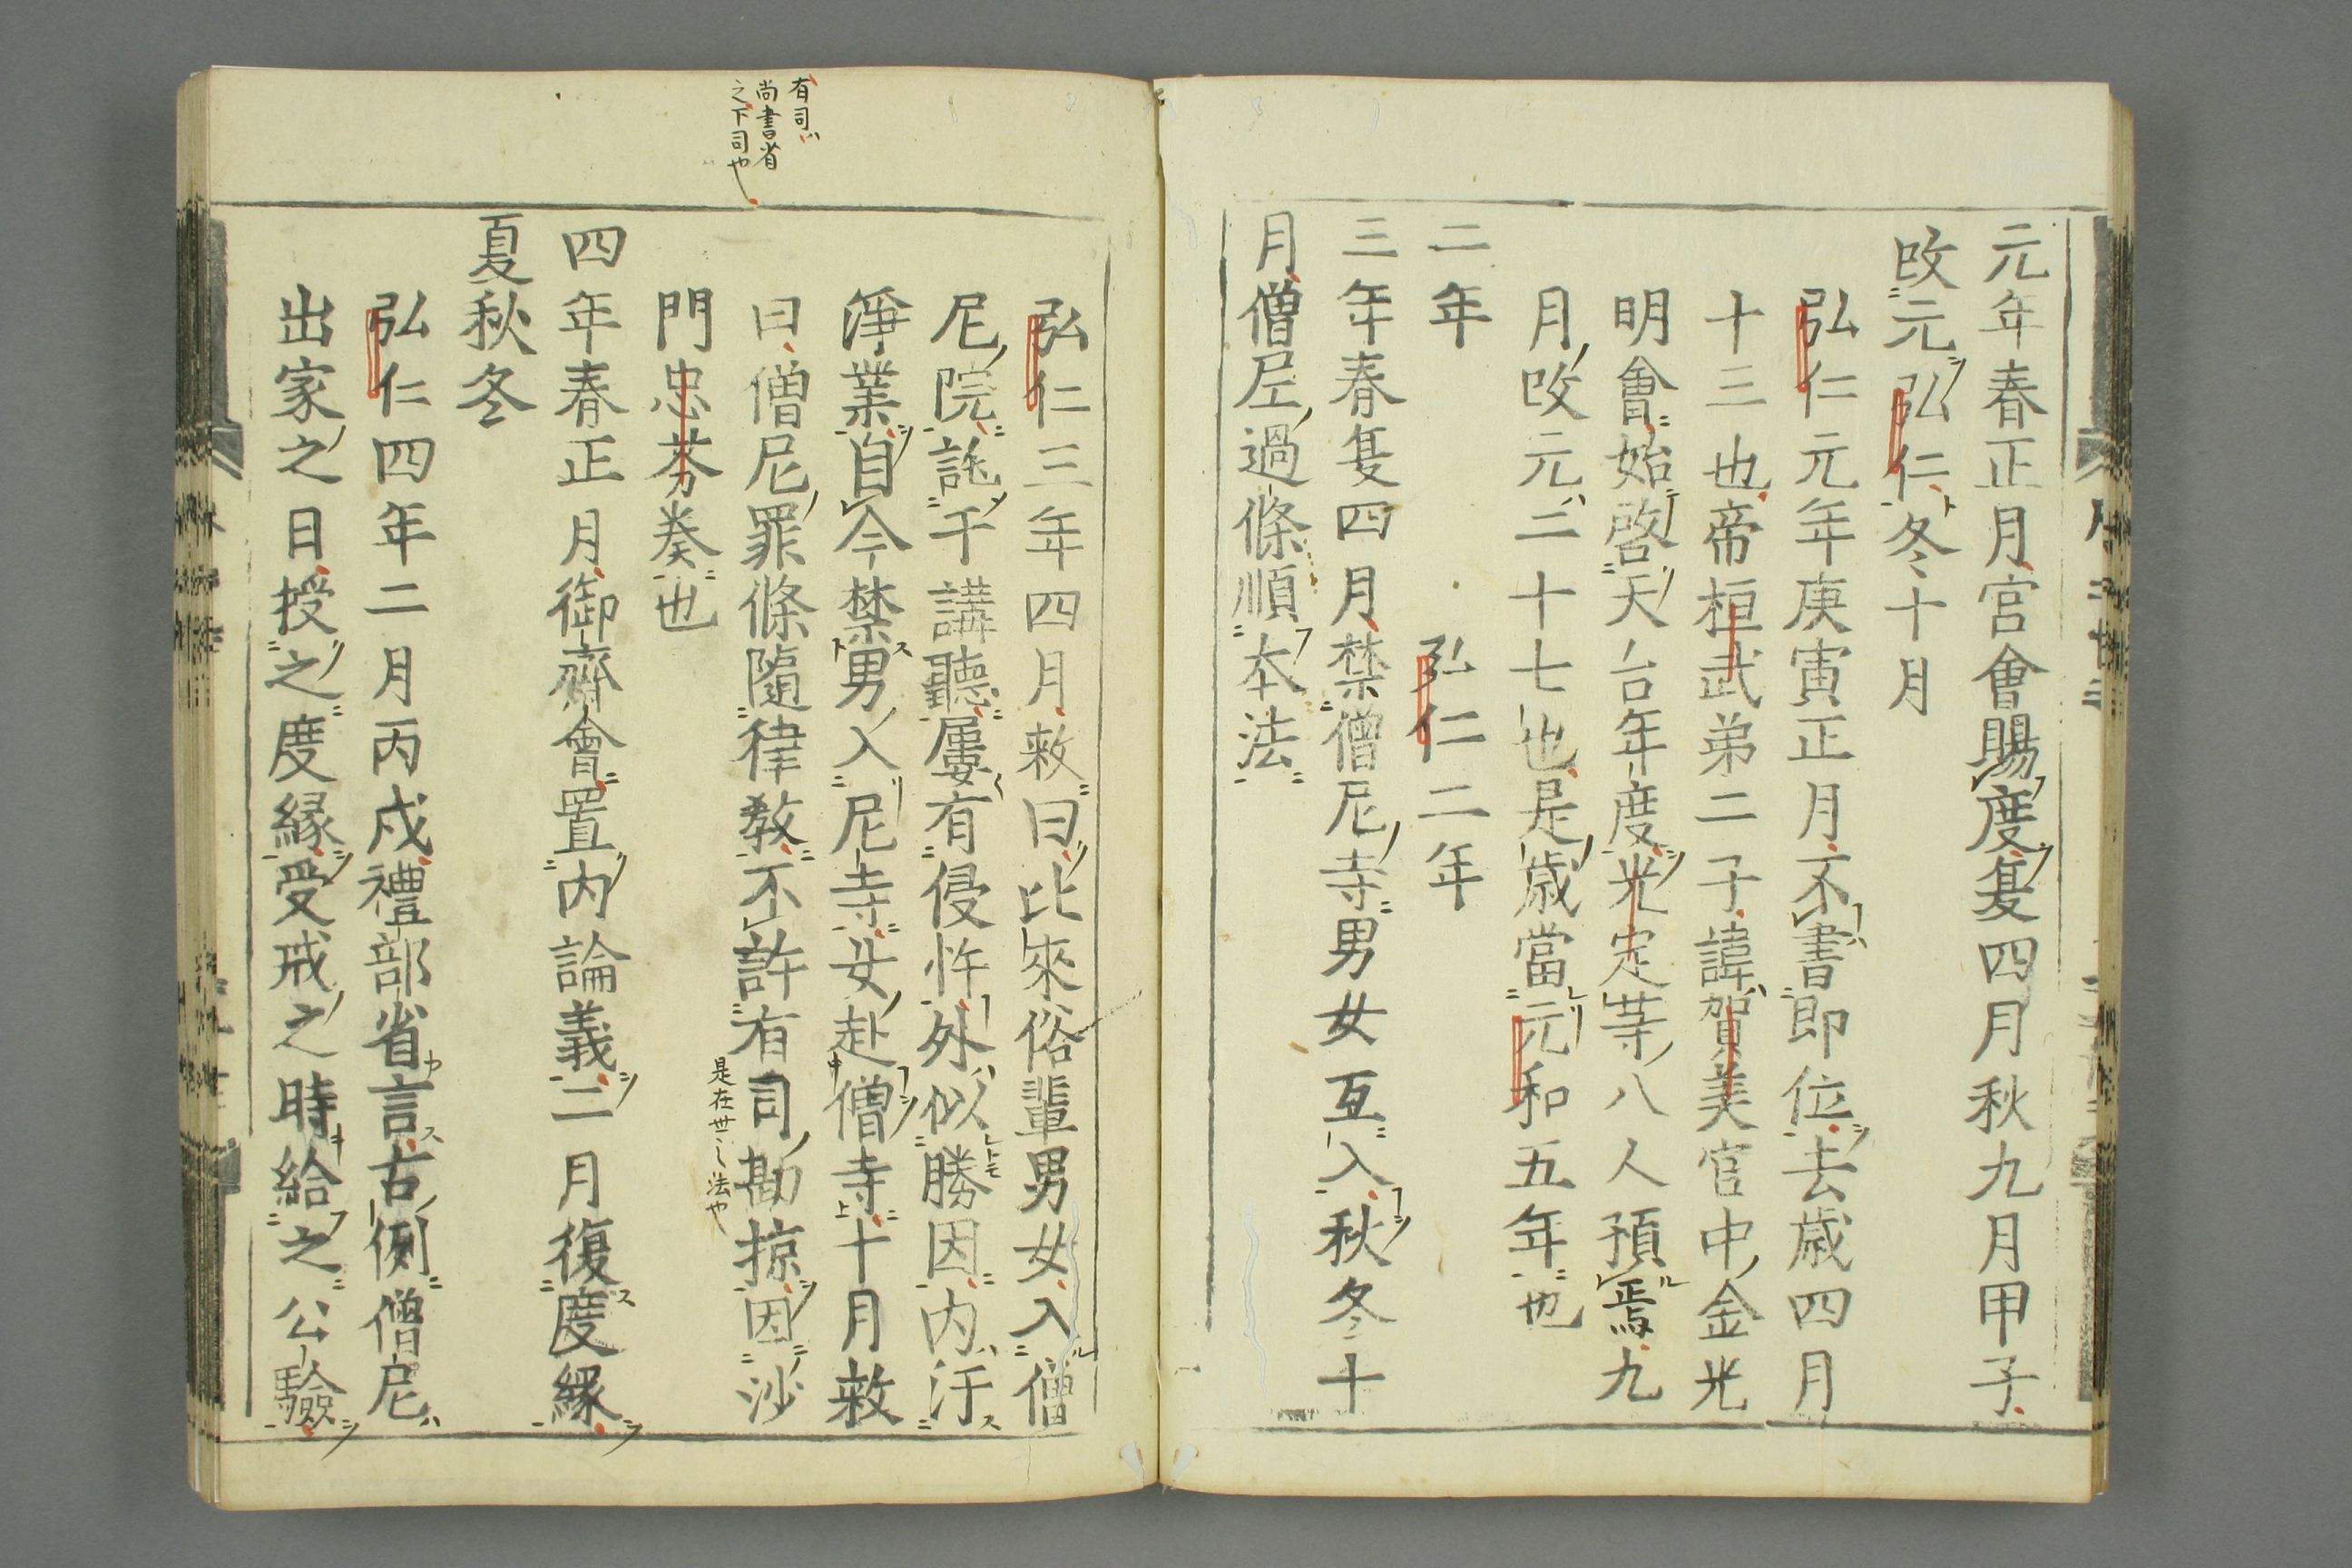 元年春正月宮會賜度夏四月秋九月甲子
改元弘仁冬十月
弘仁元年庚寅正月不書即位去歳四月
十三也帝桓武弟二子諱賀美官中金光
明會始啓天台年度光定等八人預焉九
月改元二十七也是歳當元和五年也
二年　弘仁二年
三年春夏四月禁僧尼寺男女互入秋冬十
月僧尼過條順本法
弘仁三年四月敕曰比來俗輩男女入僧
尼院託于講聽屢有侵忤外似勝因内汙
淨業自今禁男入尼寺女赴僧寺十月敕
曰僧尼罪條隨律教不許有司勘掠因沙
門忠芬奏也
四年春正月御齋會置内論義二月復度縁
夏秋冬
弘仁四年二月丙戌禮部省言古例僧尼
出家之日授之度縁受戒之時給之公驗
有司ハ
尚書省
之下司也
是在世之法也